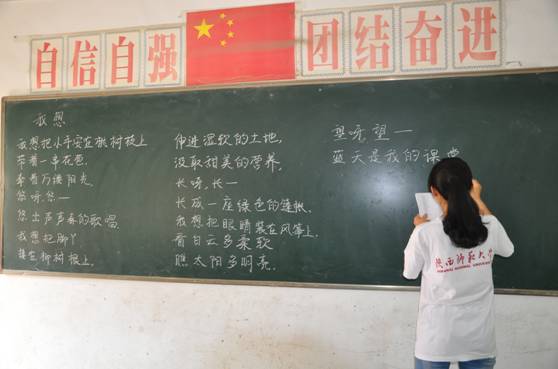 自信自强 团结奋进
我想
我想把小手安在桃树枝上
带着一串花苞,
牵着万缕阳光,
悠呀,悠一
悠出声声春的歌唱
我想把脚丫
接在柳树根上.
伸进湿软的土地,
汲取甜美的营养,
长呀,长一
长成一座绿色的篷帐.
我想把眼睛装在风筝上,
看白云多柔软
瞧太阳多明亮.
望呀,望一
蓝天是我的课堂
陕西师范大学